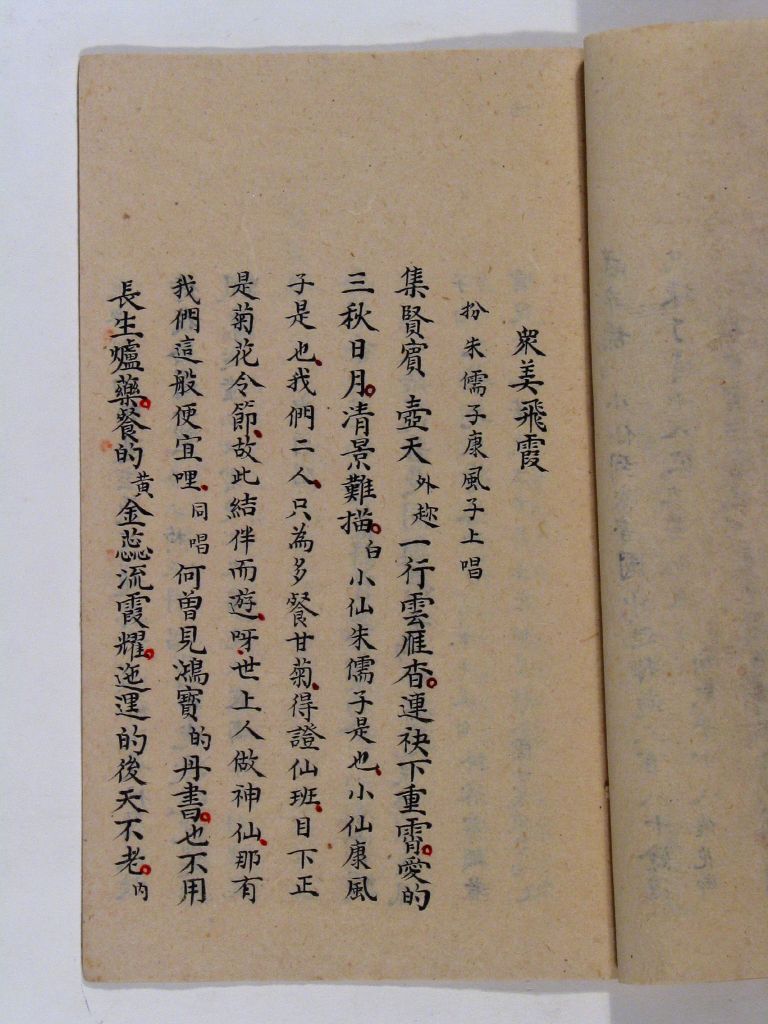 衆美飛霞
扮朱儒子康風子上唱
集賢賓壺天外趂一行雲雁杳。連袂下重霄。愛的
三秋日月。清景難描。白小仙朱儒子是也、小仙康風
子是也、我們二人、只為多餐甘菊、得證仙班、目下正
是菊花令節、故此結伴而遊、呀、世上人做神仙、那有
我們這般便宜哩、同唱何曾見鴻寶的丹書。也不用
長生爐藥。餐的黃金蕊流霞耀。迤逗的後天不老。内